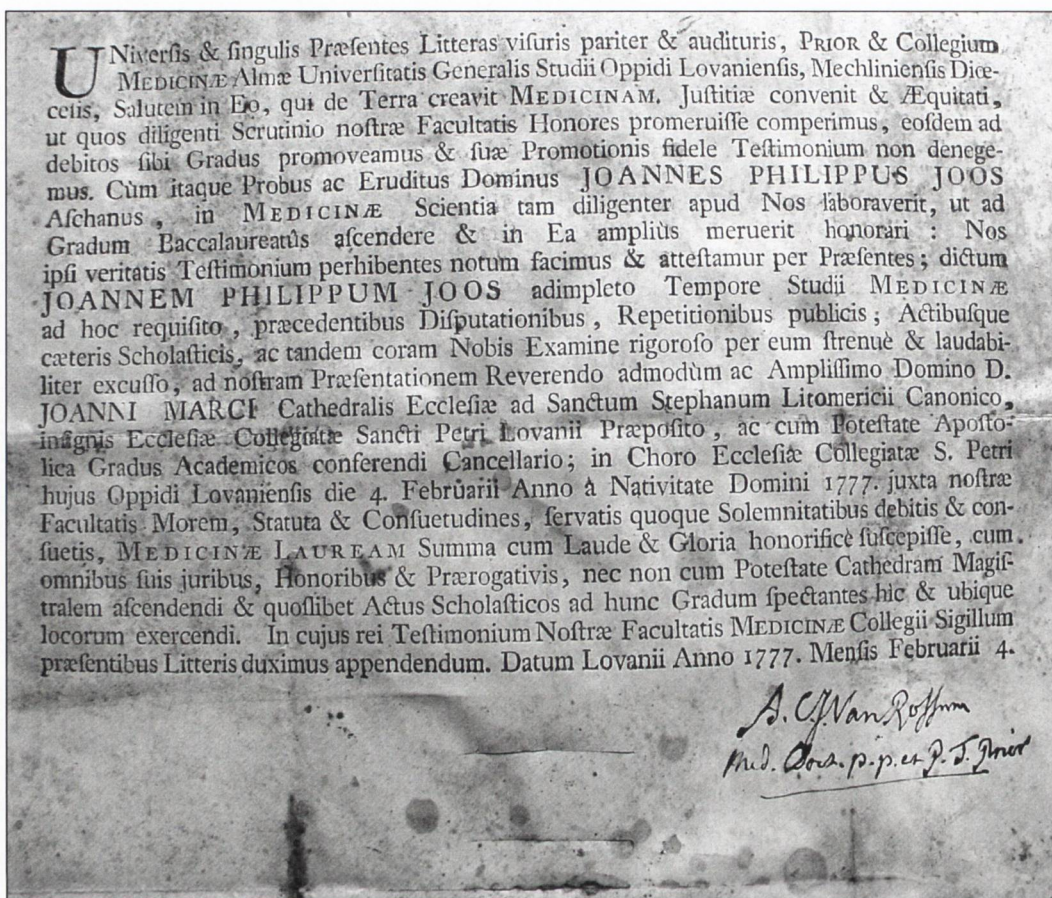 UNiverſis & ſingulis Præſentes Litteras viſuris pariter & audituris, PRIOR & Collegium
MEDICINÆ Almæ Univerſitatis Generalis Studii Oppidi Lovanienſis, Mechlinienſis Diœ-
ceſis, Salutem in Eo, qui de Terra creavit MEDICINAM. Juſtitiæ convenit & Æquitati,
ut quos diligenti Scrutinio noſtræ Facultatis Honores promeruiſſe comperimus, eoſdem ad
debitos ſibi Gradus promoveamus & ſuæ Promotionis fidele Teſtimonium non denege-
mus. Cùm itaque Probus ac Eruditus Dominus JOANNES PHILIPPUS JOOS
Aſchanus, in MEDICINÆ Scientia tam diligenter apud Nos laboraverit, ut ad
Gradum Baccalaureatûs aſcendere & in Ea ampliùs meruerit honorari : Nos
ipſi veritatis Teſtimonium perhibentes notum facimus & atteſtamur per Præſentes ; dictum
JOANNEM PHILIPPUM JOOS adimpleto Tempore Studii MEDICINÆ
ad hoc requiſito, præcedentibus Diſputationibus, Repetitionibus publicis ; Actibuſque
cæteris Scholaſticis, ac tandem coram Nobis Examine rigoroſo per eum ſtrenuè & laudabi-
liter excuſſo, ad noſtram Præſentationem Reverendo admodùm ac Ampliſſimo Domino D.
JOANNI MARCI Cathedralis Eccleſiæ ad Sanctum Stephanum Litomericii Canonico,
inſignis Eccleſiæ Collegiatæ Sancti Petri Lovanii Præpoſito, ac cum Poteſtate Apoſto-
lica Gradus Academicos conferendi Cancellario ; in Choro Eccleſiæ Collegiatæ S. Petri
hujus Oppidi Lovanienſis die 4. Februarii Anno à Nativitate Domini 1777. juxta noſtræ
Facultatis Morem, Statuta & Conſuetudines, ſervatis quoque Solemnitatibus debitis & con-
ſuetis, MEDICINÆ LAUREAM Summa cum Laude & Gloria honorificè ſuſcepiſſe, cum
omnibus ſuis juribus, Honoribus & Prærogativis, nec non cum Poteſtate Cathedram Magiſ-
tralem aſcendendi & quoſlibet Actus Scholaſticos ad hunc Gradum ſpectantes hic & ubique
locorum exercendi. In cujus rei Teſtimonium Noſtræ Facultatis MEDICINÆ Collegii Sigillum
præſentibus Litteris duximus appendendum. Datum Lovanii Anno 1777. Menſis Februarii 4.
Van Roſſum
Med. Doct. p.p. et P. T. Prior